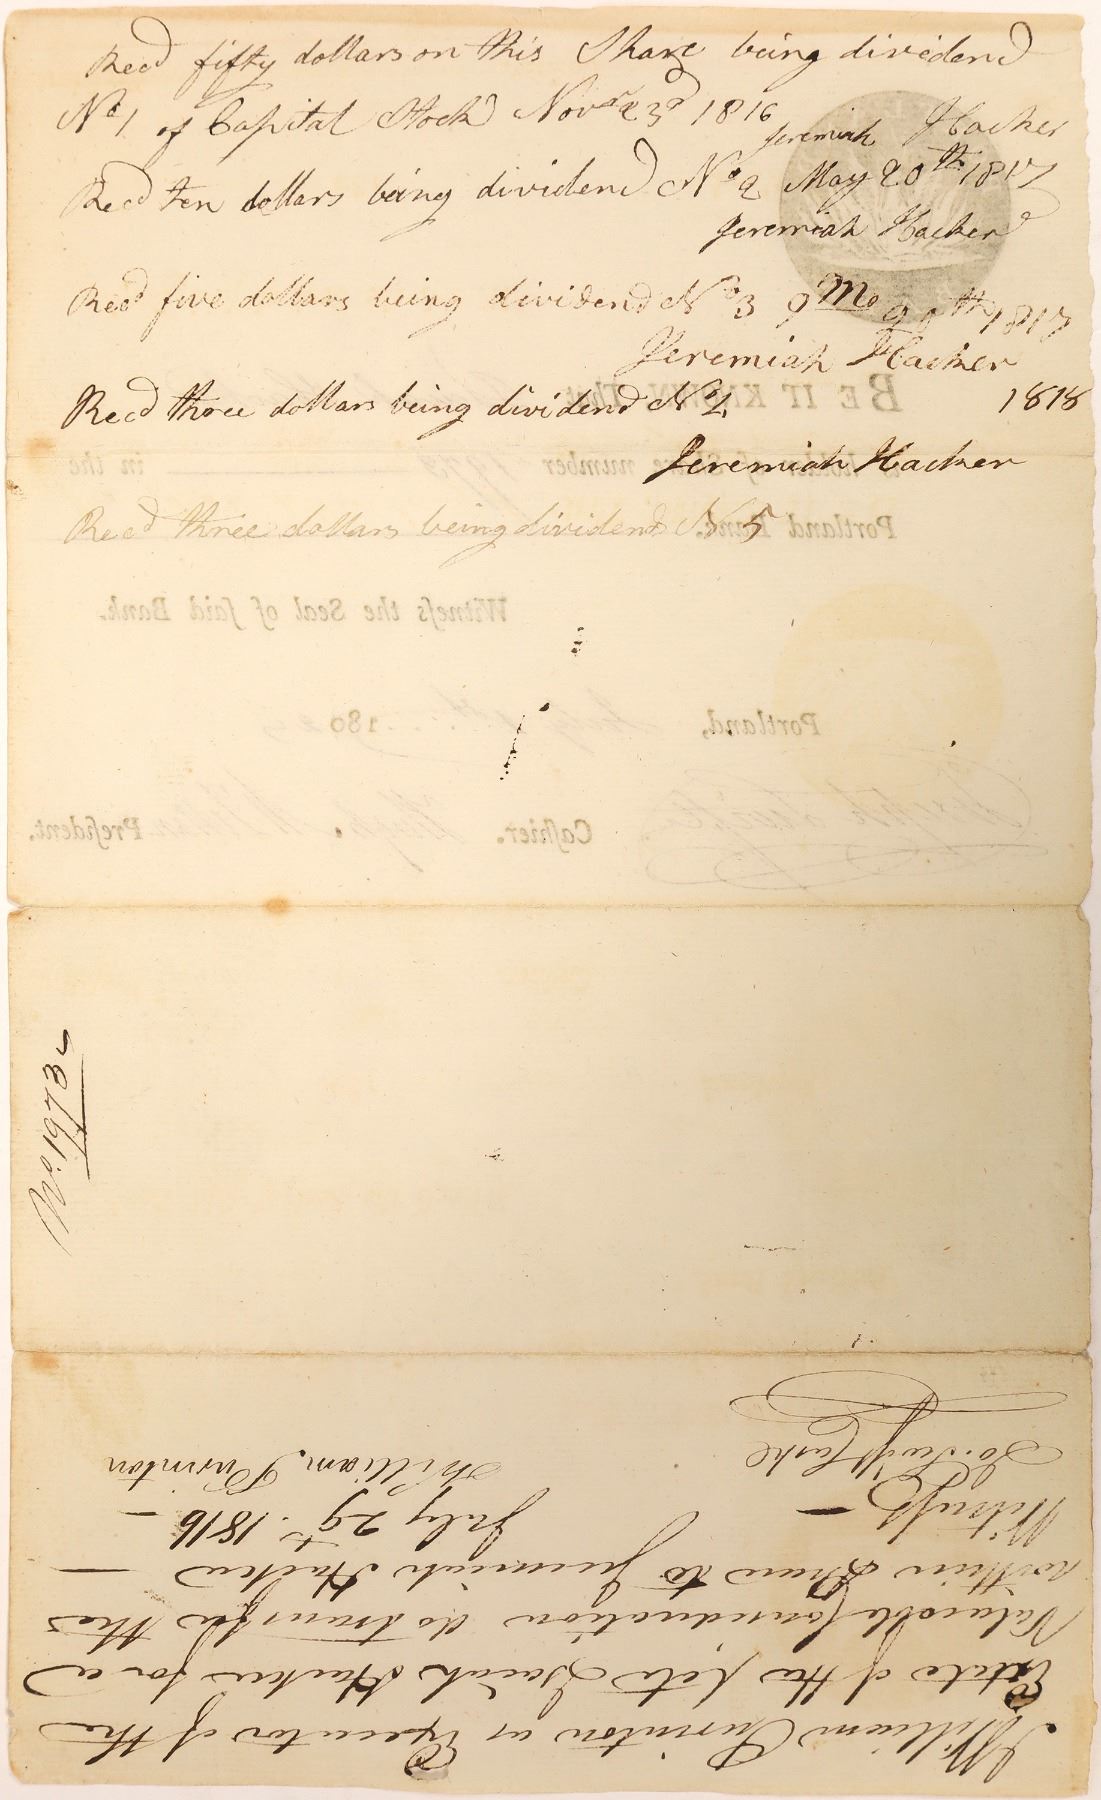 Recd fifty dollars on this Share being dividend
No 1 of Capital Stock Novr 23d 1816
Jeremiah Hacker
Recd ten dollars being dividend No 2 May 20th 1817
Jeremiah Hacker
Recd five dollars being dividend No 3 9 Mo 20th 1817
Jeremiah Hacker
BE IT KNOWN, That
Recd three dollars being dividend No 4 1818
number 1973 in the
Jeremiah Hacker
Portland Bank.
Recd three dollars being dividend No 5
Witneſs the Seal of ſaid Bank.
Portland, 180
Caſhier. Preſident.
No. 1973
I William Purinton as Executor of the
Estate of the late Isaiah Hacker for a
Valuable Consideration do transfer the
within Share to Jeremiah Hacker —
Witneſs — July 29th. 1816 —
William Purinton